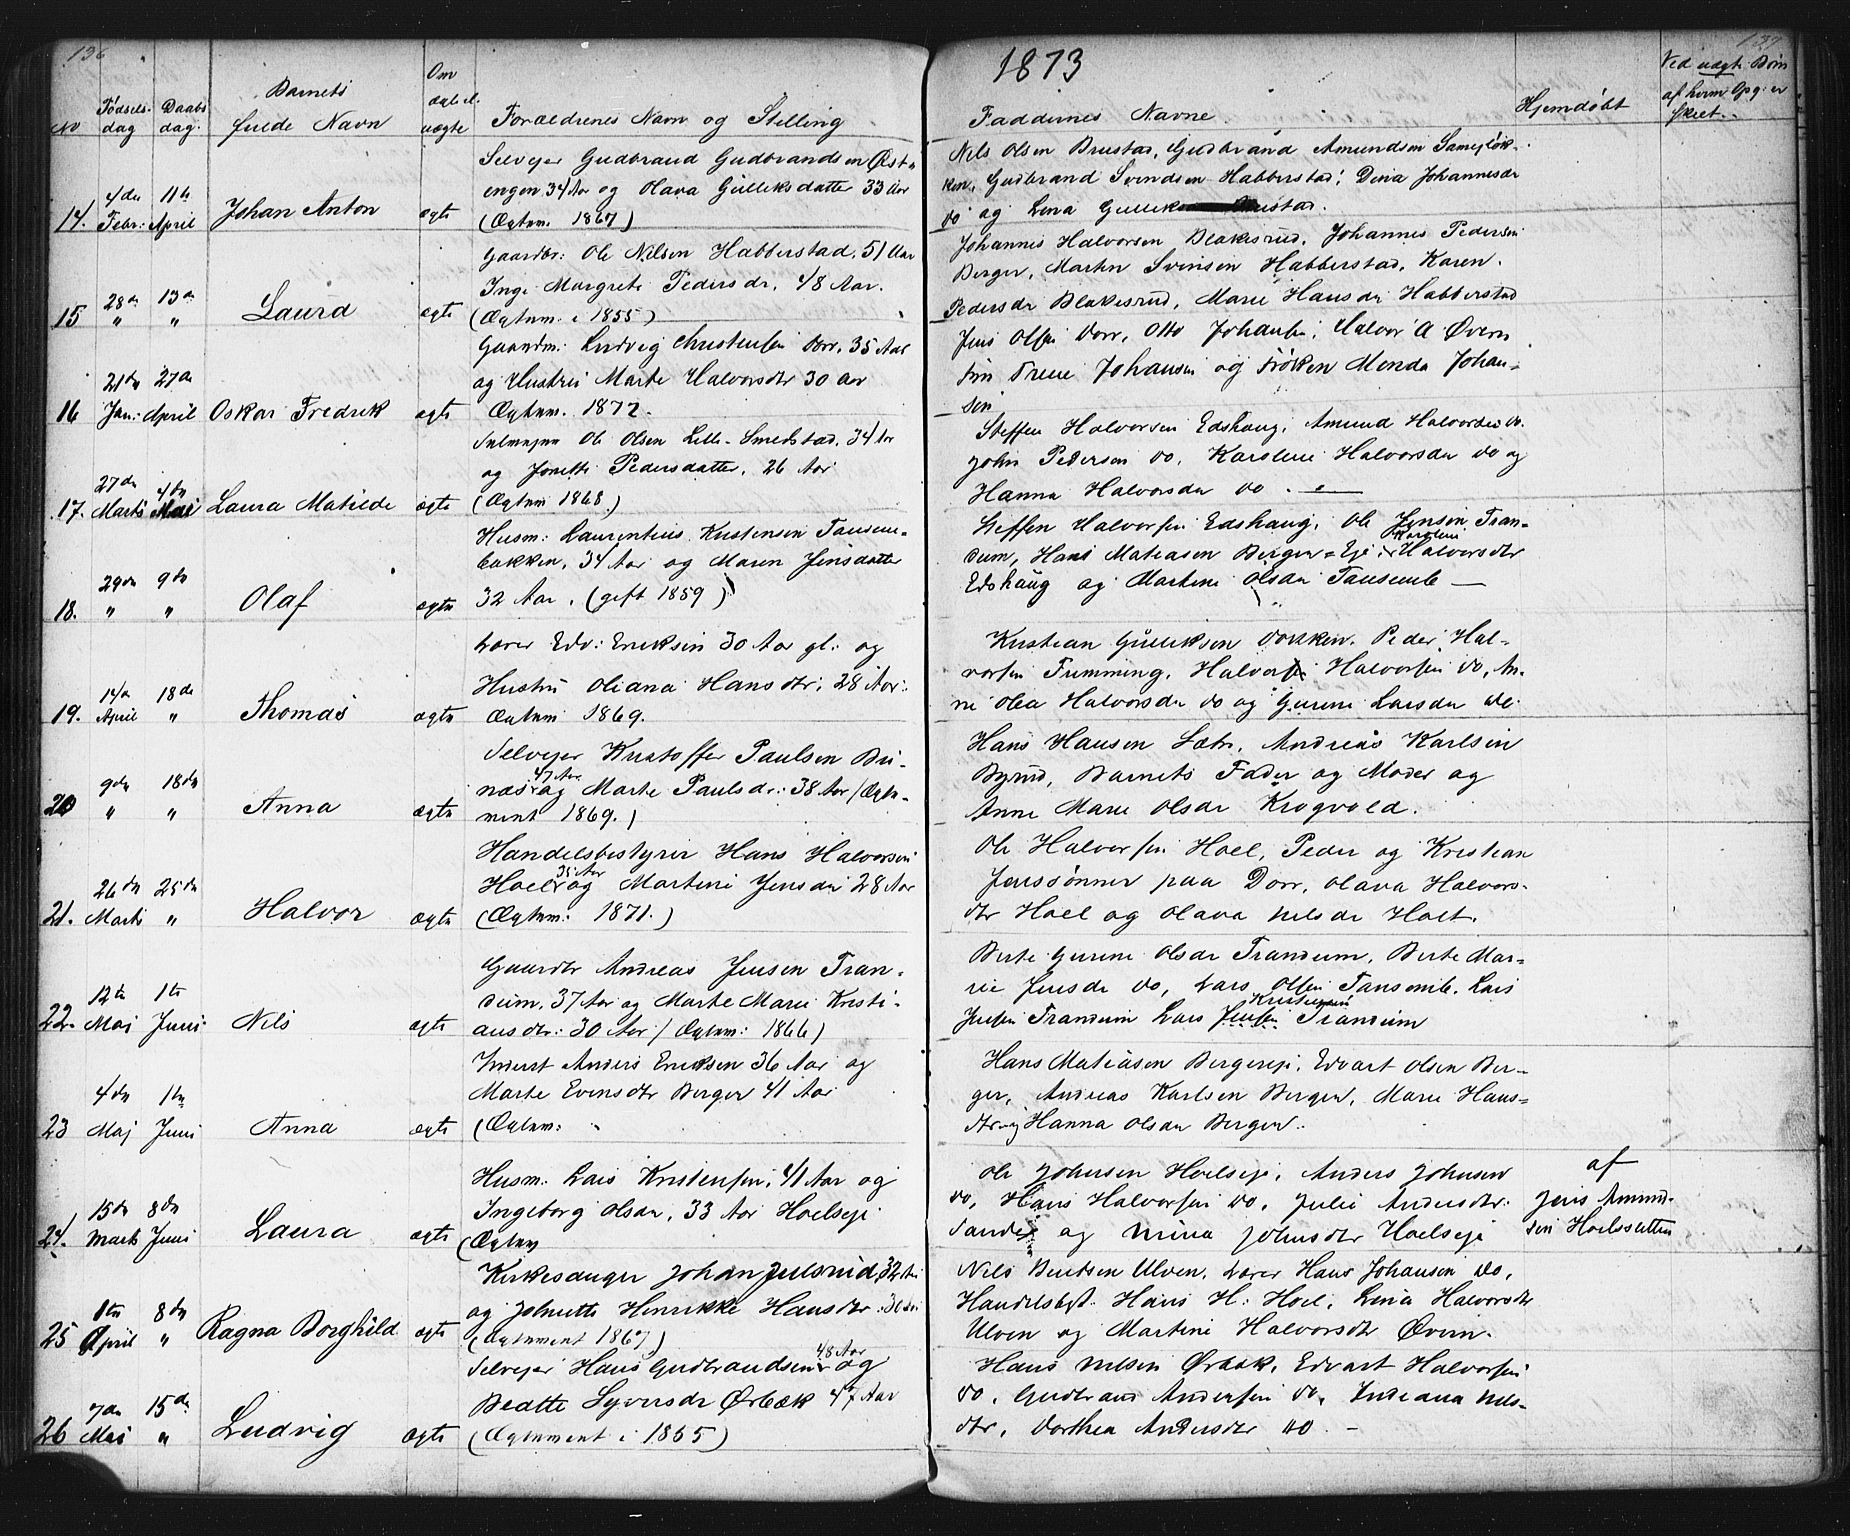 136
No
Fødsels-
dag
Daabs
dag.
Barnets
fulde Navn
Om
ægte el.
uægte
Forældrenes Navn og Stilling
14.
4de
Febr:
11te
April
Johan Anton
ægte
Selvejer Gudbrand Gudbrandsen Øst-
engen 34 Aar og Olava Gulliksdatter 33 Aar
(Ægtem. 1867)
15
28de
"
13de
"
Laura
ægte
Gaardbr: Ole Nilsen Habberstad, 51 Aar
Inge Margrete Pedersdr, 48 Aar.
(Ægtem. i 1855)
16
21de
Jan:
27de
April
Oskar Fredrik
ægte
Gaardm: Ludvig Christensen Dorr, 35 Aar
og Hustru Marte Halvorsdtr 30 Aar
Ægtem. 1872.
17.
27de
Marts
4de
Mai
Laura Matilde
ægte
Ole Olsen Lille-Smedstad, 34 Aar
og Jonette Pedersdatter, 26 Aar
(Ægtem 1868)
18.
29de
"
9de
"
Olaf
ægte
Husm: Laurentius Kristensen Tansem-
bakken, 34 Aar og Maren Jensdatter
32 Aar, (gift 1859)
19.
14de
April
18de
"
Thomas
ægte
Lærer Edv: Eriksen 30 Aar gl: og
Hustru Oliana Hansdtr, 28 Aar:
Ægtem 1869.
20
9de
"
18de
"
Anna
ægte
Selvejer Kristoffer Paulsen Bu-
næs 47 Aar og Marte Paulsdr: 38 Aar (Ægte-
ment 1869.)
21.
26de
Marts
25de
"
Halvor
ægte
Handelsbestyrer Hans Halvorsen
Hoel 35 Aar og Martine Jensdr 28 Aar
(Ægtem: 1871.)
22.
12te
Maj
1te
Juni
Nils
ægte
Gaardbr Andreas Jensen Tran-
dum, 37 Aar og Marte Marie Kristi-
ansdtr: 30 Aar (Ægtem: 1866)
23
4de
Maj
1te
Juni
Anna
ægte
Inderst Anders Eriksen 36 Aar og
Marte Evensdtr Berger 41 Aar
(Ægtem:
24.
15de
Marts
8de
Juni
Laura
ægte
Husm: Lars Kristensen, 41 Aar og
Ingeborg Olsdr, 33 Aar Hoelseje
(Ægtem
25
1te
April
8de
"
Ragna Borghild
ægte
Kirkesanger Johan Julsrud, 32 Aar
og Johnette Henrikke Hansdtr: 30 Aar
(Ægtement 1867)
26
7de
Mai
15de
"
Ludvig
ægte
Selvejer Hans Gudbrandsen 48 Aar og
Beatte Syversdr Ørbæk 47 Aar
(Ægtement i 1855)
1873
137
Faddernes Navne.
Hjemdøbt
Ved uægt: Børn
af hvem Opg: er
skeet.
Nils Olsen Brustad, Gudbrand Amundsen Sameiløk-
ken, Gudbrand Svendsen Habberstad, Dina Johannesdr
do og Lina Gullik Brustad.
Johannes Halvorsen Blakesrud, Johannes Pedersen
Berger, Marthin Svensen Habberstad, Karen
Pedersdr Blakesrud, Marie Hansdr Habberstad
Jens Olsen Dorr, Otto Johansen, Halvor A Øvern
Frøken Menda Johan-
sen
Steffen Halvorsen Edshaug, Amund Halvorsen do.
John Pedersen do, Karoline Halvorsdr do og
Hanna Halvorsdr do.
Steffen Halvorsen Edshaug, Ole Jensen Tran-
dum, Hans Matiasen Berger-Eje, Karoline Halvorsdtr
Edshaug og Martine Olsdr Tansemb
Kristian Gulliksen Dokken. Peder Hal-
vorsen Fumming, Halvorsen Halvorsen do, An-
ne Olea Halvorsdr do og Gurine Larsdr do.
Hans Hansen Sætr, Andreas Karlsen
Byrud, Barnets Fader og Moder og
Anne Marie Olsdr Krogvold.
Ole Halvorsen Hoel, Peder og Kristian
Jenssønner paa Dorr, Olava Halvors-
dtr Hoel og Olava Nilsdr Holt.
Berte Gurine Olsdr Trandum, Berte Ma-
rie Jensdr do, Lars Olsen Tansemb. Lars
Jensen Trandum Lars Jensen Kristensen Trandum
Hans Matiasen Bergereje, Edvart Olsen Ber-
ger, Andreas Karlsen Berger, Marie Hans-
dtr og Hanna Olsdr Berger.
Ole Johnsen Hoelseje, Anders Johnsen
do, Hans Halvorsen do, Julie Andersdtr:
Sandi og Mina Johnsdtr Hoelseje
af
Jens Amund-
sen Hoelssætten
Nils Bentsen Ulven, Lærer Hans Johansen do,
Handelsbst. Hans H: Hoel, Lina Halvorsdtr
Ulven og Martine Halvorsdtr Øvern.
Hans Nilsen Ørbæk, Edvart Halvorsen
do, Gudbrand Andersen do, Indiana Nils-
dtr, Dorthea Andersdtr do. -